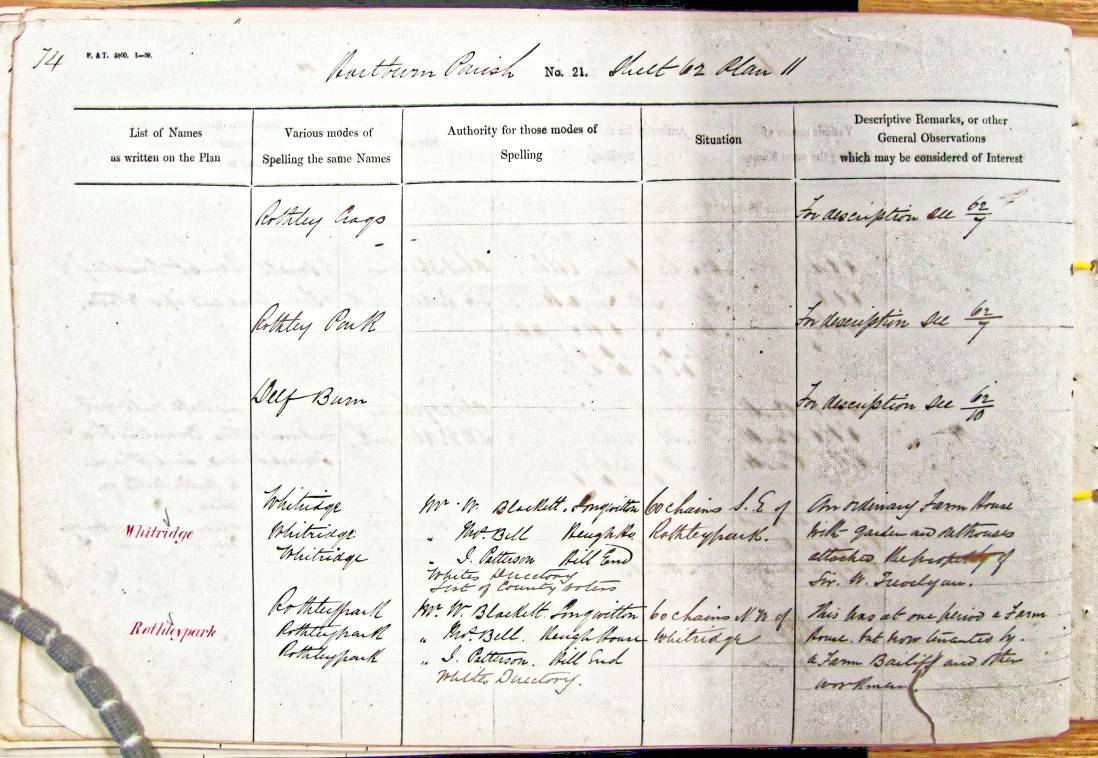 74
W. & T. 5800. 1—59.
Hartburn Parish No. 21. Sheet 62 Plan 11
List of Names
as written on the Plan
Various modes of
Spelling the same Names
Authority for those modes of
Spelling
Situation
Descriptive Remarks, or other
General Observations
which may be considered of Interest
Rothley Crags
For description see 62/7
Rothley Park
For description see 62/7
Delf Burn
For description see 62/10
Whitridge
Whitridge
Whitridge
Whitridge
Mr. W. Blackett. Longwitton
" Mos. Bell Heugh Ho.
" J. Patterson Hill End
Whites Directory
List of County Voters
60 chains S. E. of
Rothleypark.
An ordinary Farm House
with garden and outhouses
attached the property of
Sir. W. Trevelyan.
Rothleypark
Rothleypark
Rothleypark
Rothleypark
Mr. W. Blackett. Longwitton
" Mos. Bell. Heugh House
" J. Patterson. Hill End
Whites Directory.
60 chains N. W. of
Whitridge
This was at one period a Farm
House. but now tenanted by.
a Farm Bailiff and other
workmen.